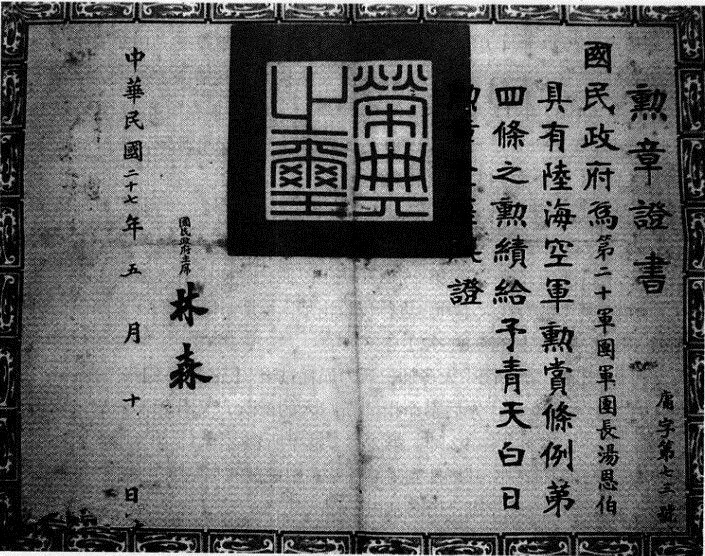 勳章證書
字第七三號
國民政府爲第二十軍團軍團長湯恩伯
具有陸海空軍勳賞條例第
四條之勳績給予青天白日
勳章
證
榮典之璽
國民政府主席
林森
中華民國二十七年五月十日